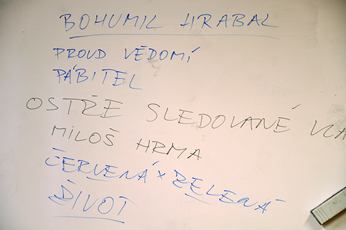 BOHUMIL HRABAL
PROUD VĚDOMÍ
PÁBITEL
OSTŘE SLEDOVANÉ VLA
MILOŠ HRMA
ČERVENÁ × ZELENÁ
ŽIVOT